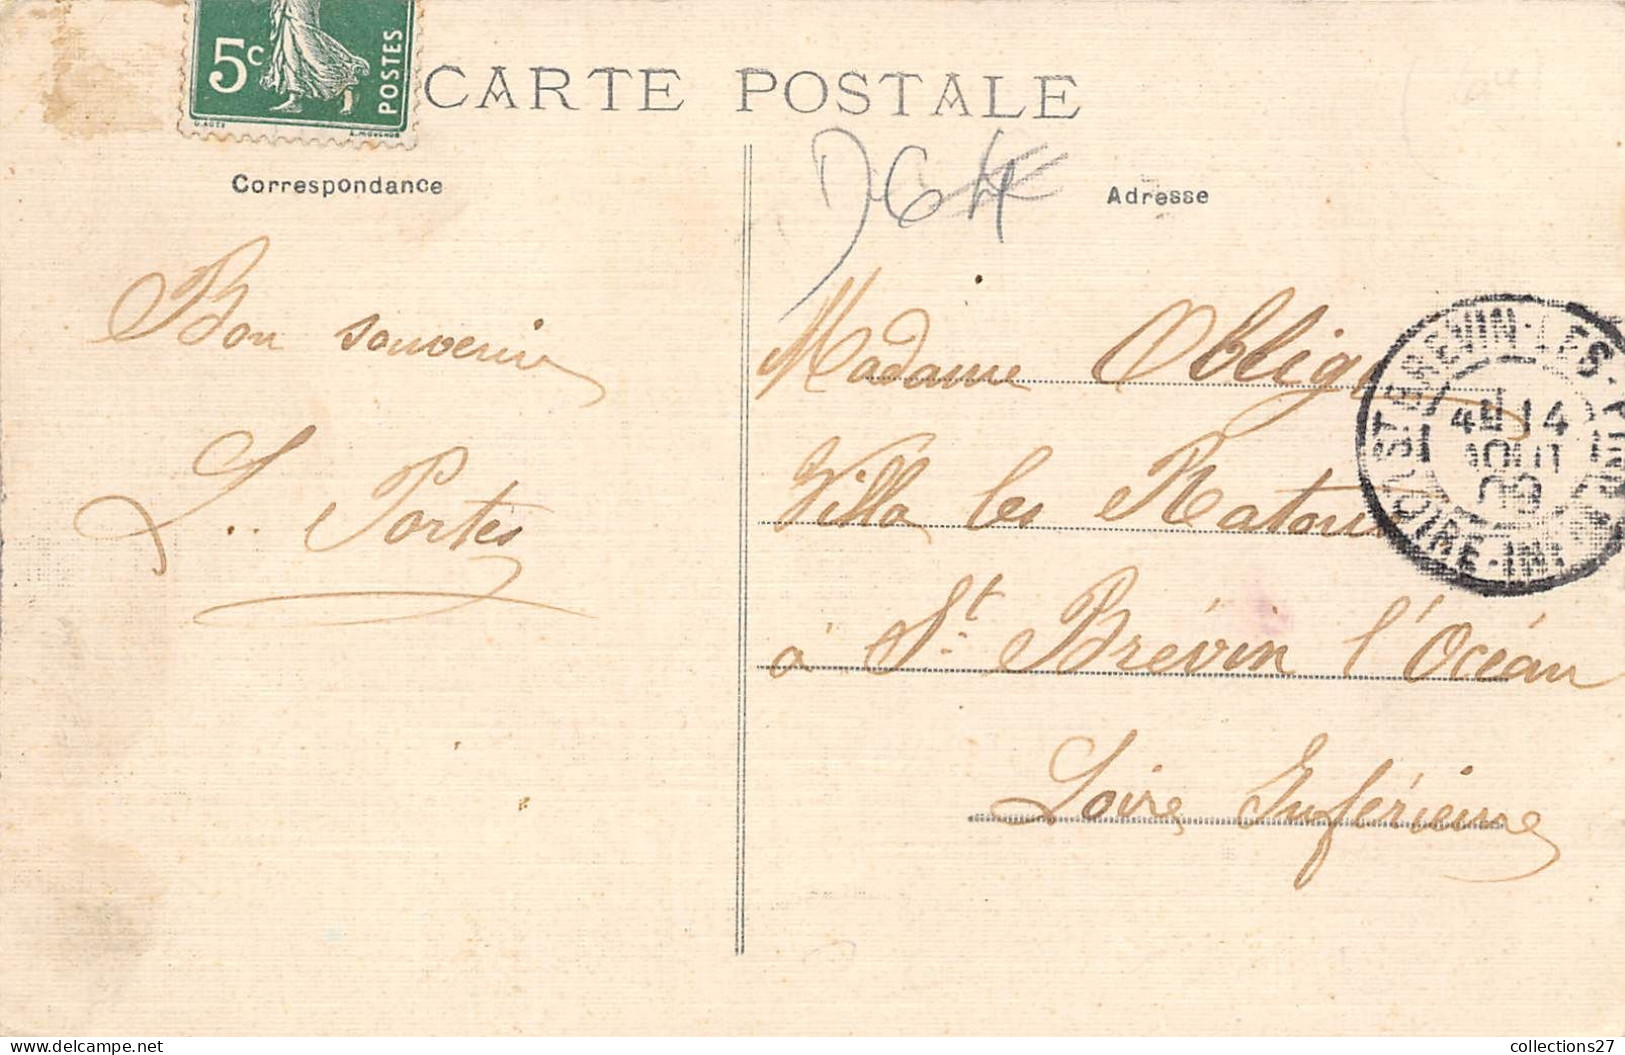 5c
POSTES
CARTE POSTALE
Correspondance
Adresse
Bon souvenir
L.. Portes
Madame
Villa les
à St. Brévin l'Océan
Loire Inférieure
ST BREVIN-LES-PINS
14
AOUT
09
LOIRE-INF
collections27